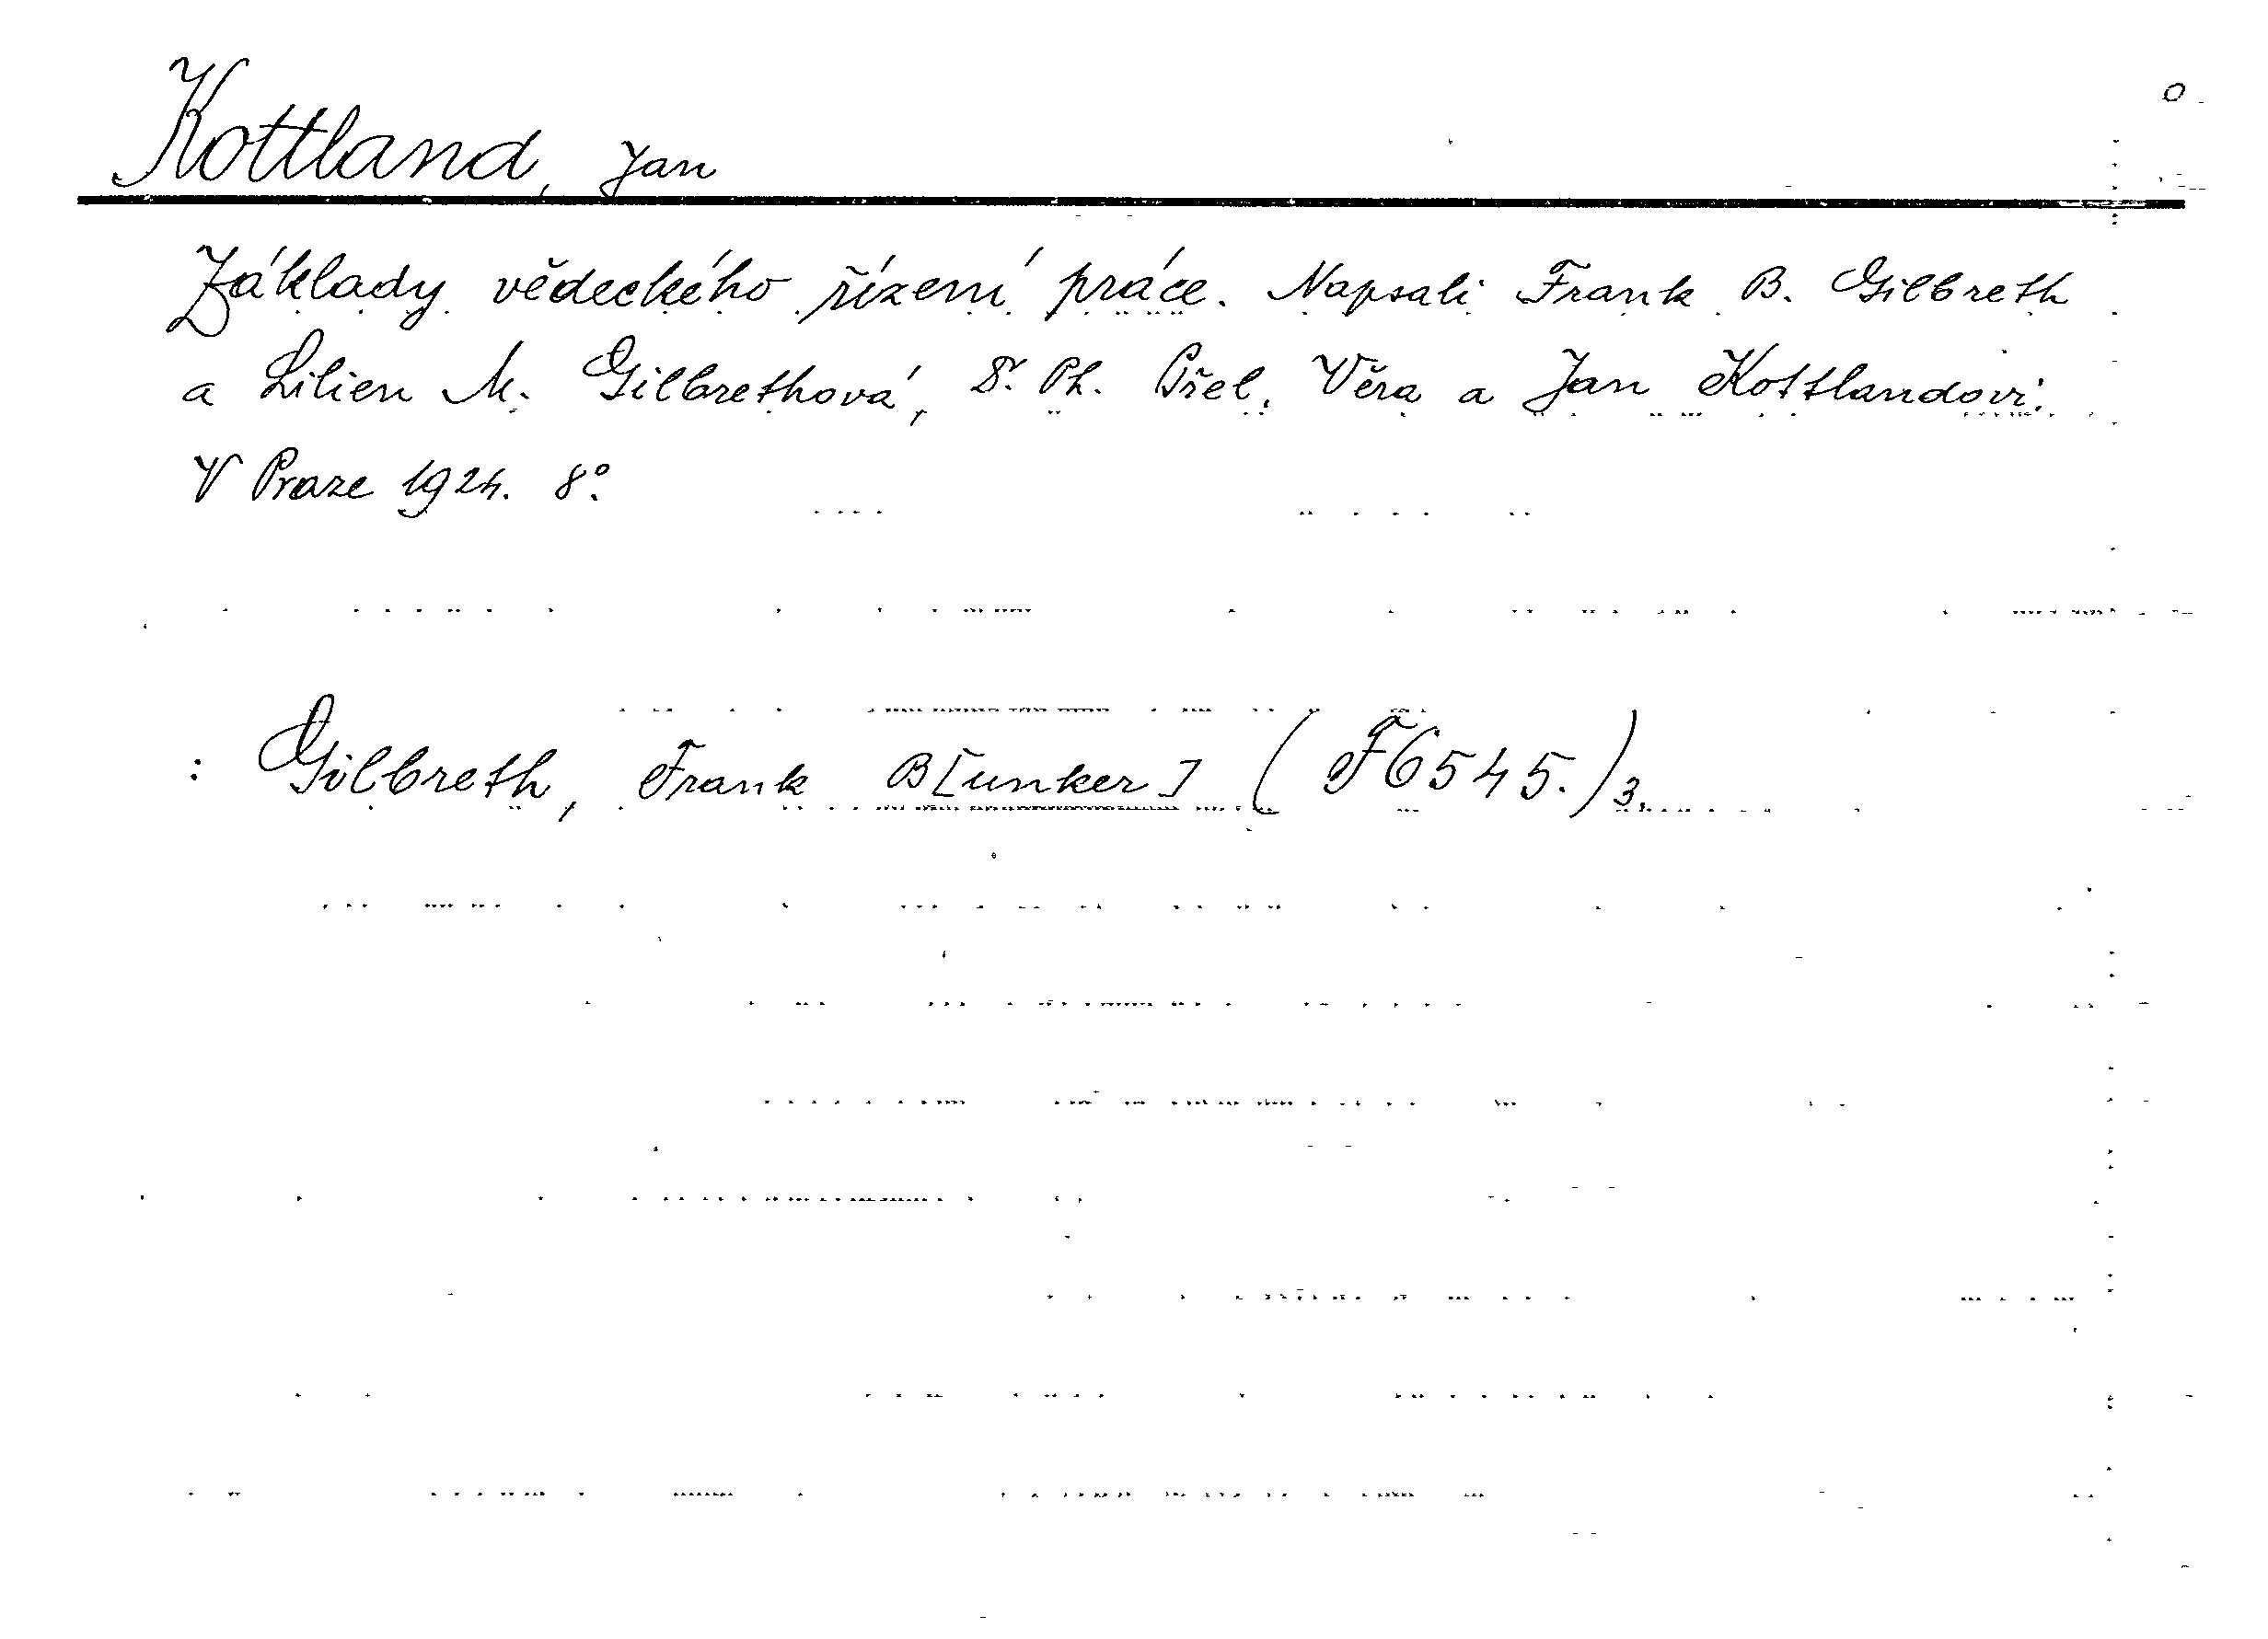 Kottland, Jan
Základy vědeckého řízení práce. Napsali Frank B. Gilbreth
a Lilien M. Gilbrethová, Dr. Ph. Přel. Věra a Jan Kottlandovi.
V Praze 1924. 8°.
: Gilbreth, Frank B[unker] (F6545.)3.